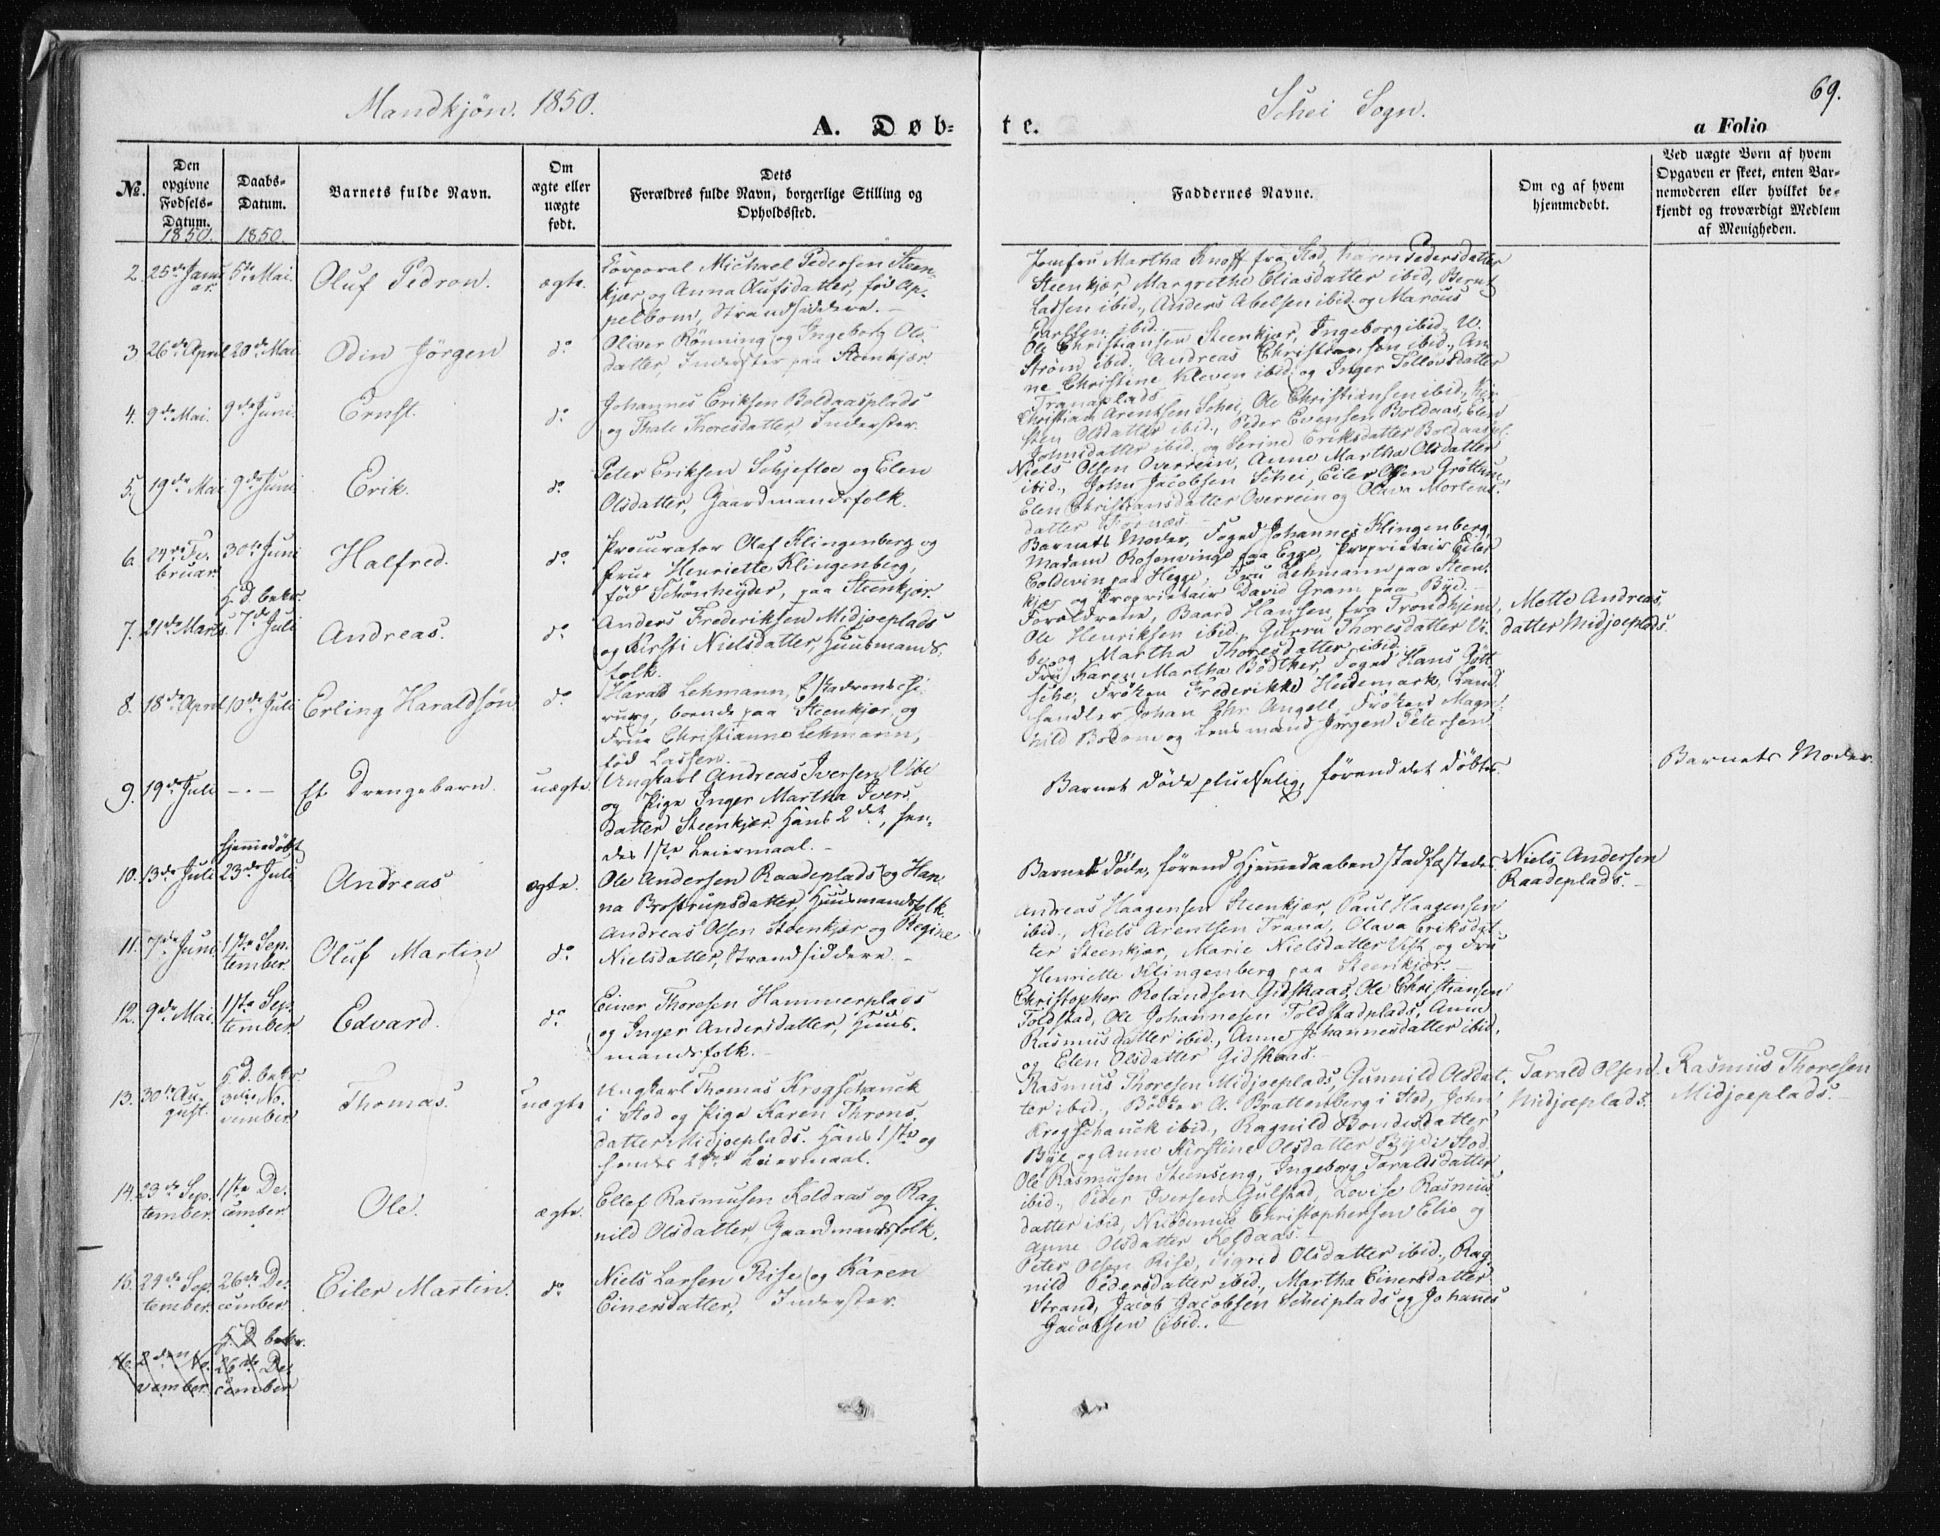 Mandkjøn. 1850.
Schei Sogn.
69.
A. Døb-
te.
a Folio
No.
Den opgivne Fødsels-Datum.
Daabs-Datum.
Barnets fulde Navn.
Om ægte eller uægte født.
Dets Forældres fulde Navn, borgerlige Stilling og Opholdssted.
Faddernes Navne.
Om og af hvem hjemmedøbt.
Ved uægte Børn af hvem Opgaven er skeet, enten Barnemoderen eller hvilket bekjendt og troværdigt Medlem af Menigheden.
1850.
1850.
2.
25de Janu-
ar.
5te Mai.
Oluf Pedron.
ægte
Corporal Michael Pedersen Steen-
kjær og Anna Olufsdatter, fød Ap-
pelbom, Strandsiddere.
Jomfru Martha Knoff fra Stod, Karen Pedersdatter
Steenkjær, Margrethe Eliasdatter ibid, Bernt
Lassen ibid., Anders Abelsen ibid. og Marcus
Carlsen ibid.
3
26de April
20de Mai
Odin Jörgen
do
Oliver Rönning og Ingeborg Ols-
datter, Inderster paa Steenkjær
Ole Christiansen Steenkjær, Ingeborg ibid, U.
Strøm ibid., Andreas Christiansen ibid., An-
ne Christine Kleven ibid. og Inger Tollovsdatter
Tranaplads.
4.
9de Mai.
9de Juni.
Ernst.
do
Johannes Eriksen Boldaasplads
og Thale Thoresdatter, Inderster.
Christian Arentsen Schei, Ole Christiansen ibid., Kir-
sten Olsdatter ibid., Peder Evensen Boldaas, Elen
Johnsdatter ibid. og Serine Eriksdatter Boldaaspl.
5.
19de Mai
9de Juni
Erik.
do
Peter Eriksen Schjefloe og Elen
Olsdatter, Gaardmandsfolk.
Niels Olsen Overrein, Anne Martha Olsdatter
ibid., John Jacobsen Schei, Eiler Olsen Gröttum
Elen Christiansdatter Overrein og Olava Mortens-
datter Fornæs
6.
24de Fe-
bruar.
30te Juni
Halfred.
do
Procurator Olaf Klingenberg og
frue Henriette Klingenberg,
fød Schönheyder, paa Steenkjær.
Barnets Moder, Foged Johannes Klingenberg,
Madam Rosenvinge paa Egge, Proprietair Eiler
Coldevin paa Hegge, Fru Lehmann paa Steen-
kjær og Proprietair David Gram paa Byd.
7.
21de Marts
H. d. bekr.
7de Juli
Andreas.
do
Anders Frederiksen Midjoeplads
og Kirsti Nielsdatter, Huusmands-
folk.
Forældrene, Baard Hansen fra Trondhjem,
Ole Henriksen ibid., Gurru Thoresdatter Vi-
be og Martha Thoresdatter ibid.
Mette Andreas-
datter Midjoeplads.
8.
18de April
10de Juli
Erling Haraldsøn
do
Harald Lehmann, Eskadronschi-
rurg, boende paa Steenkjær, og
Frue Christianne Lehmann,
fød Lassen.
Fru Karen Martha Bödtker, Foged Hans Gött-
sche, Fröken Frederikke Heidemark, Land-
handler Johan Chr. Angell, Fröken Magn-
hild Bodom og Lensmand Jørgen Petersen
9.
19de Juli
— . —
Et Drengebarn.
uægte.
Ungkarl Andreas Iversen Vibe
og Pige Inger Martha Ivers-
datter Steenkjær. Hans 2det, hen-
des 1ste Leiermaal.
Barnet døde pludselig, førend det døbtes.
Barnets Moder.
10.
13de Juli
Hjemmedøbt
23de Juli
Andreas
ægte.
Ole Andersen Raadeplads og Han-
na Brostrupsdatter, Huusmandsfolk.
Barnet døde, førend Hjemmedaaben stadfæstedes.
Niels Andersen
Raadeplads.
11.
7de Juni
1ste Sep-
tember.
Oluf Martin
do
Andreas Olsen Steenkjær og Regine
Nielsdatter, Strandsiddere.
Andreas Haagensen Steenkjær, Paul Haagensen
ibid., Niels Arentsen Trana, Olava Eriksdat-
ter Steenkjær, Marie Nielsdatter Vist og Fru
Henriette Klingenberg paa Steenkjær.
12.
9de Mai.
1ste Sep-
tember
Edvard.
do
Einer Thoresen Hammerplads
og Inger Andersdatter, Huus-
mandsfolk.
Christopher Rolandsen Gidskaas, Ole Christiansen
Foldstad, Ole Johannesen Foldstadplads, Anne
Rasmusdatter ibid., Anne Johannesdatter ibid.
og Elen Olsdatter Gidskaas.
13.
30te Au-
gust.
H. D. bekr
3die No-
vember
Thomas.
uægte
Ungkarl Thomas Krogschanck
i Stod og Pige Karen Throns-
datter Midjoeplads. Hans 1ste og
hendes 2det Leiermaal.
Rasmus Thoresen Midjoeplads, Gunnild Olsdat-
ter ibid., Bödker A. Brattenberg i Stod, John
Krogschanck ibid., Ragnild Bondesdatter
Bye og Anne Kirstine Olsdatter Byd i Stod
Tarald Olsen
Midjoeplads.
Rasmus Thoresen
Midjoeplads.
14.
23de Sep-
tember.
1ste De-
cember.
Ole.
ægte.
Ellef Rasmusen Koldaas og Rag-
nild Olsdatter, Gaardmandsfolk.
Ole Rasmusen Steenseng, Ingeborg Taraldsdatter
ibid., Peder Iversen Gulstad, Lovise Rasmus-
datter ibid, Nicodemus Christophersen Elie og
Anne Olsdatter Koldaas.
15.
24de Sep-
tember.
26de De-
cember
Eiler Martin.
do
Niels Larsen Rise og Karen
Einersdatter, Inderster.
Peter Olsen Rise, Sigrid Olsdatter ibid., Rag-
nild Pedersdatter ibid., Martha Einersdatter
Strand, Jacob Jacobsen Scheiplads og Johannes
Jacobsen ibid..
16.
2den No-
vember
H. D. bekr.
26de De-
cember